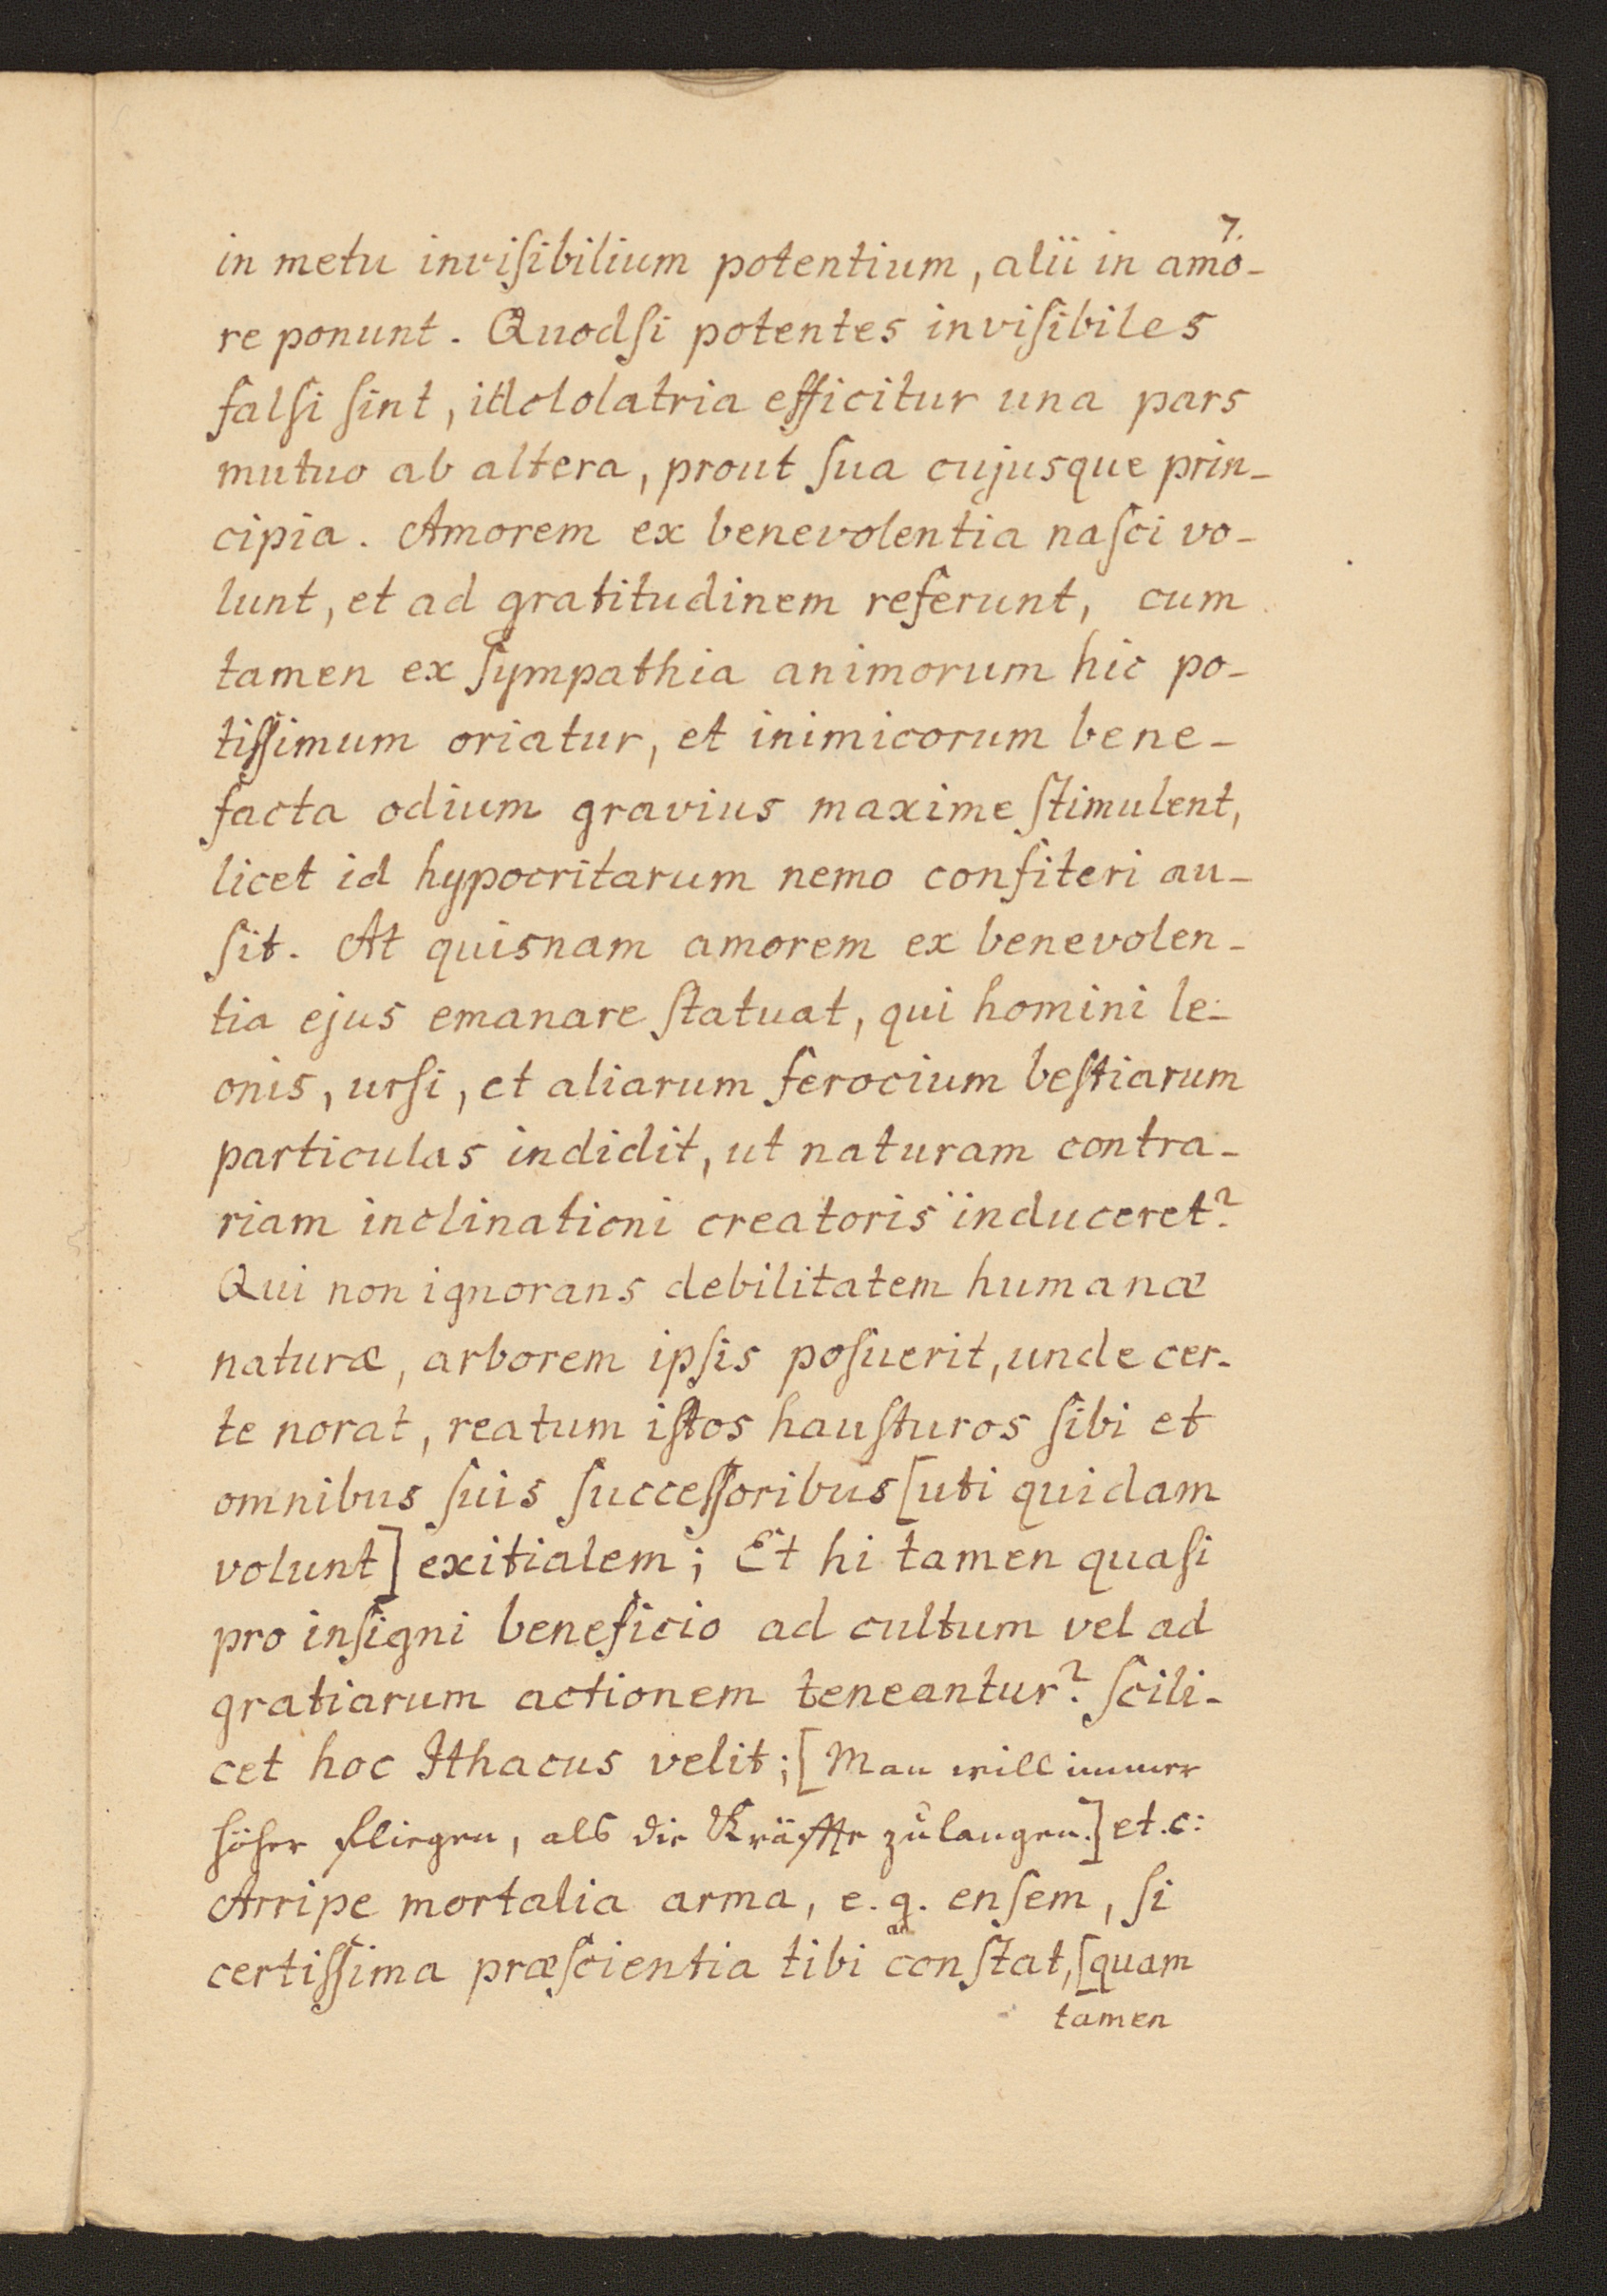 7.
in metu inviſibilium potentium, alii in amo-
re ponunt. Quodſi potentes inviſibiles
falſi ſint, idololatria efficitur una pars
mutuo ab altera, prout ſua cujusque prin-
cipia. Amorem ex benevolentia naſci vo-
lunt, et ad gratitudinem referunt, cum
tamen ex ſympathia animorum hic po-
tiſſimum oriatur, et inimicorum bene-
facta odium gravius maxime ſtimulent,
licet id hypocritarum nemo confiteri au-
ſit. At quisnam amorem ex benevolen-
tia ejus emanare ſtatuat, qui homini le-
onis, urſi, et aliarum ferocium beſtiarum
particulas indidit, ut naturam contra-
riam inclinationi creatoris induceret?
Qui non ignorans debilitatem humanæ
naturæ, arborem ipſis poſuerit, unde cer-
te norat, reatum iſtos hauſturos ſibi et
omnibus ſuis ſucceſſoribus [uti quidam
volunt] exitialem; Et hi tamen quaſi
pro inſigni beneficio ad cultum vel ad
gratiarum actionem teneantur? ſcili-
cet hoc Ithacus velit; [Man will immer
höher fliegen, als die Kräffte zulangen.] et.c:
Arripe mortalia arma, e.g. enſem, ſi
certiſſima præſcientia tibi an conſtat, [quam
tamen